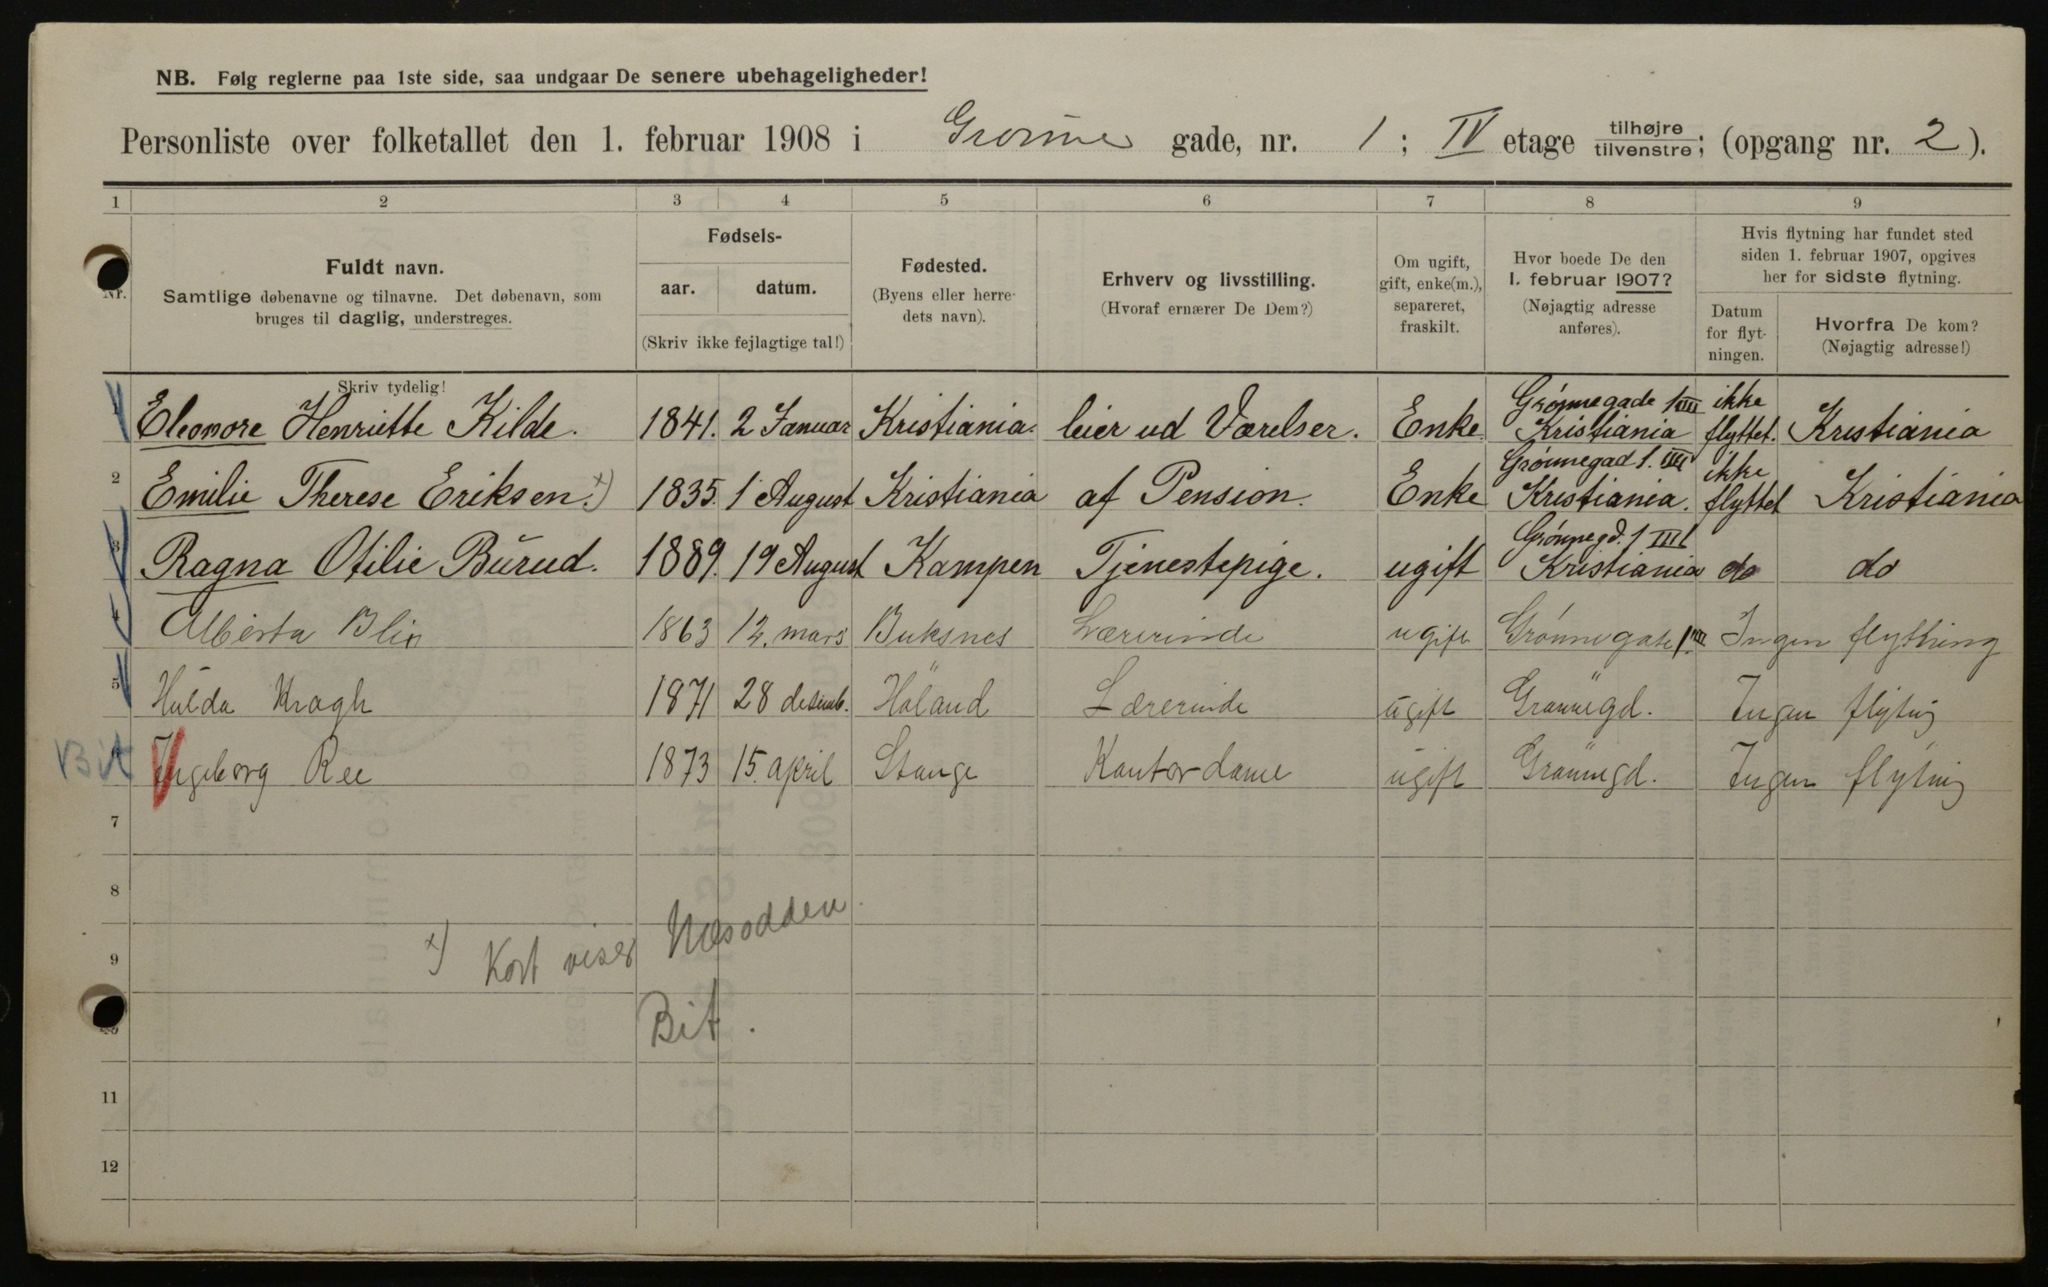 NB. Følg reglerne paa 1ste side, saa undgaar De senere ubehageligheder!
Personliste over folketallet den 1. februar 1908 i Grønne gade, nr. 1 ; IV etage tilhøjre tilvenstre; (opgang nr. 2 ).
1 2 3 4 5 6 7 8 9
Nr.
Fuldt navn.
Samtlige døbenavne og tilnavne. Det døbenavn, som
bruges til daglig, understreges.
Skriv tydelig!
Fødsels-
aar. datum.
(Skriv ikke fejlagtige tal!)
Fødested.
(Byens eller herre-
dets navn).
Erhverv og livsstilling.
(Hvoraf ernærer De Dem?)
Om ugift,
gift, enke(m.),
separeret,
fraskilt.
Hvor boede De den
1. februar 1907?
(Nøjagtig adresse
anføres).
Hvis flytning har fundet sted
siden 1. februar 1907, opgives
her for sidste flytning.
Datum
for flyt-
ningen.
Hvorfra De kom?
(Nøjagtig adresse!)
1 Eleonore Henriette Kilde. 1841. 2 Januar Kristiania. leier ud Værelser. Enke. Grønnegade 1 IIII Kristiania ikke flyttet. Kristiania
2 Emilie Therese Eriksen. x) 1835. 1 August Kristiania af Pension. Enke Grønnegad 1. IIII Kristiania. ikke flyttet Kristiania
3 Ragna Otilie Burud. 1889. 19 August Kampen Tjenestepige. ugift Grønnegd. 1 Kristiania do do
4 Alberta Blix 1863 12. mars Buksnes Lærerinde ugift Grønnegate 1 Ingen flytning
5 Hulda Kragh 1871 28 desemb. Høland Lærerinde ugift Grønnegd. Ingen flytnig
Bit Ingeborg Ree 1873 15. april Stange Kontordame ugift Grønnegd. Ingen flytnig
7
8
x) Kort viser Næsodden.
9
Bit.
10
11
12